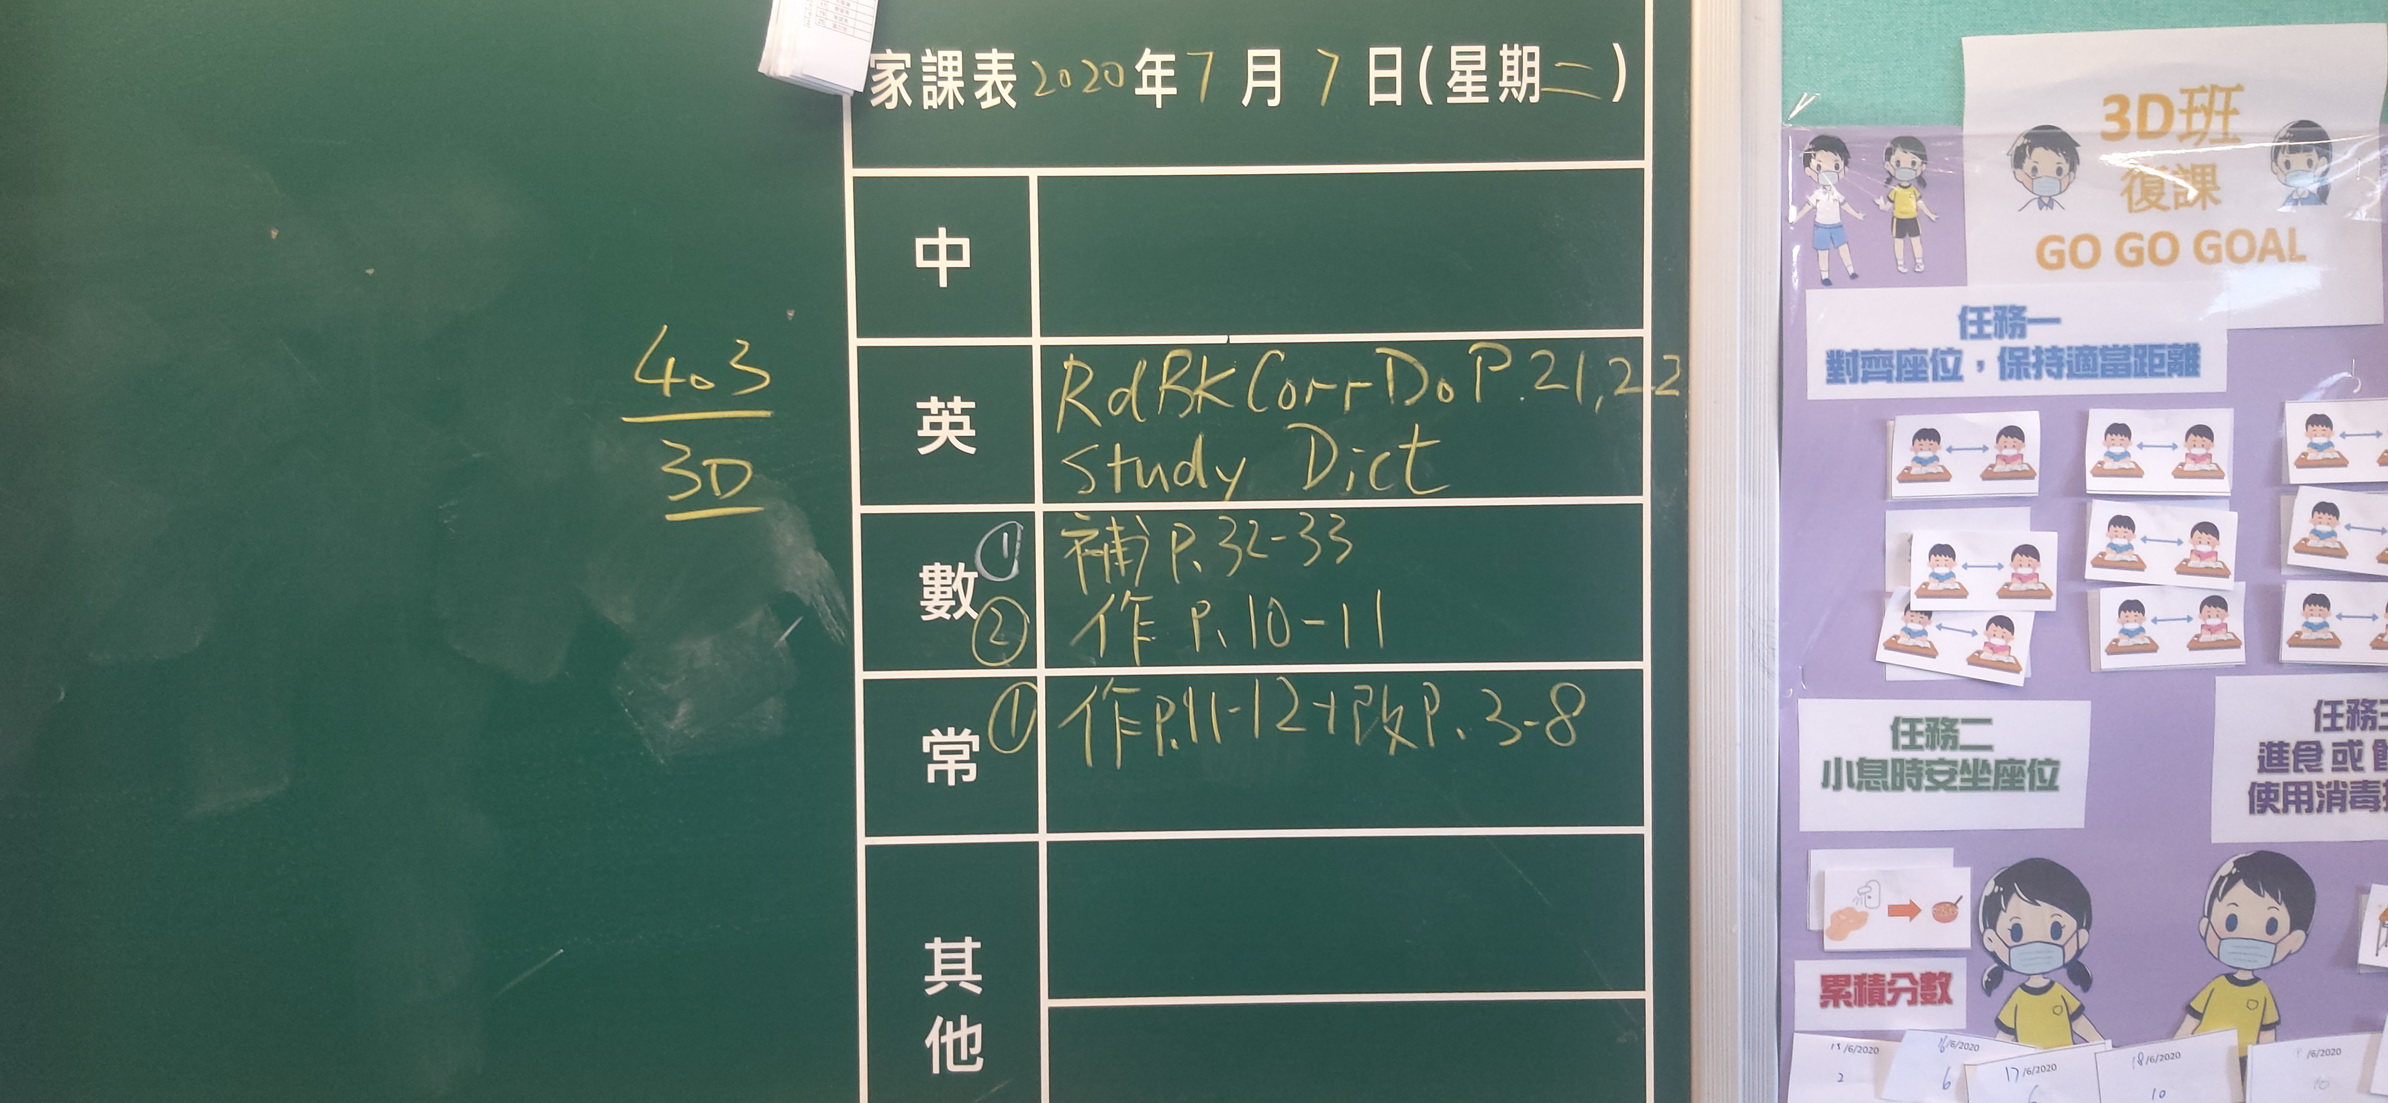 家課表2020年7月7日(星期二)
中
英
RdBk Corr Do P.21,22
Study Dict
數
① 補 P.32-33
② 作 P.10-11
常
① 作P.11-12+改P.3-8
其他
403
3D
3D班
復課
GO GO GOAL
任務一
對齊座位，保持適當距離
任務二
小息時安坐座位
進食或
使用消毒
累積分數
15/6/2020
2
16/6/2020
6
17/6/2020
18/6/2020
10
/6/2020
10